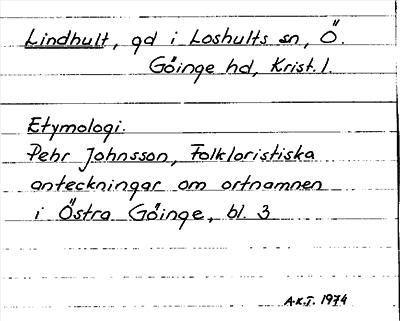 Lindhult, gd i Loshults sn, Ö.
Göinge hd, Krist. l.
Etymologi.
Pehr Johnsson, Folkloristiska
anteckningar om ortnamnen
i Östra Göinge, bl. 3
A.K.J. 1974